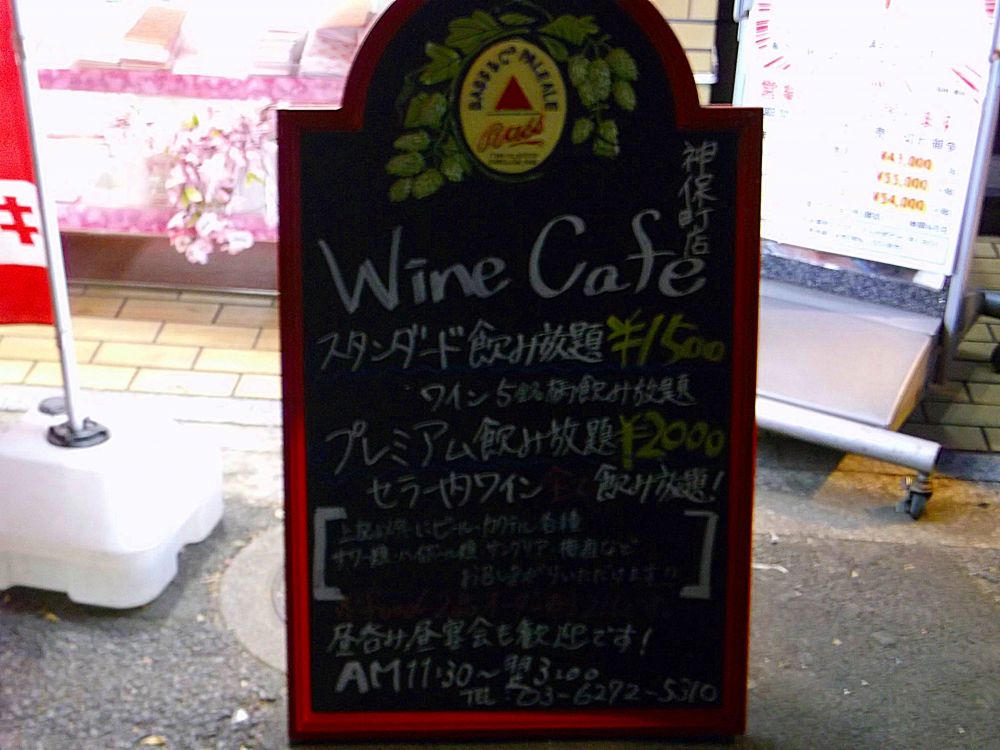 BASS & Co's PALE ALE
Bass
神保町店
Wine Cafe
スタンダード飲み放題 ¥1500
ワイン5銘柄飲み放題
プレミアム飲み放題 ¥2000
セラー内ワイン 飲み放題!
上記以外にビール・カクテル各種
サワー類・ハイボール類 サングリア・梅酒など
お召しあがりいただけます!!
昼呑み,昼宴会も歓迎です!
AM11:30～翌3:00
TEL 03-6272-5310
¥43,000
¥55,000
¥54,000
キ